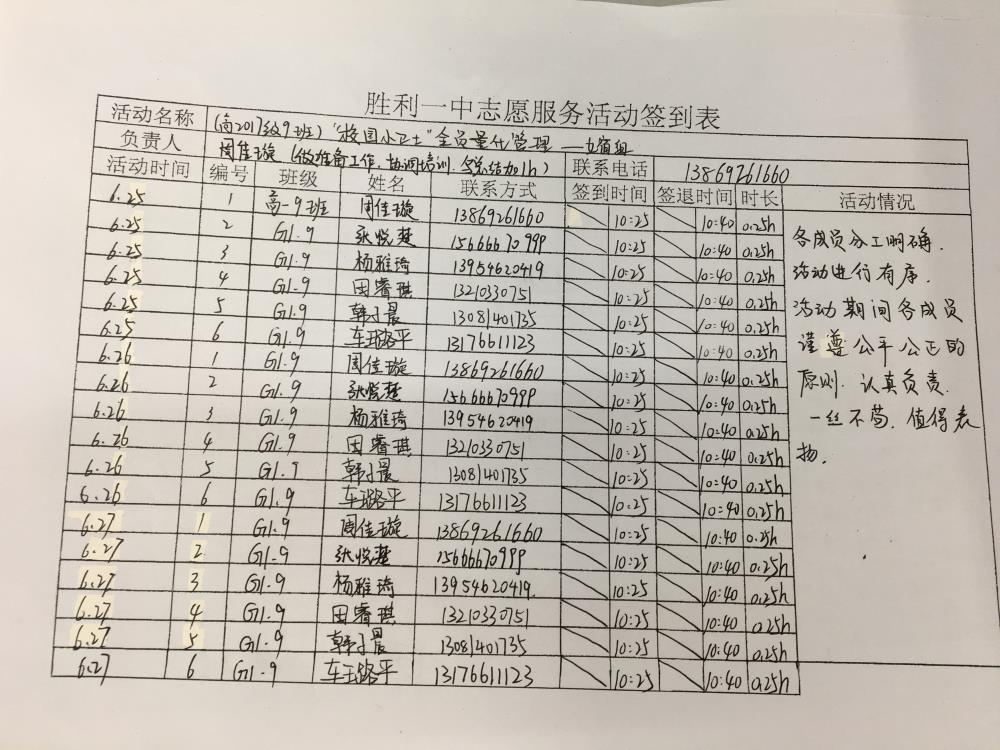 胜利一中志愿服务活动签到表
活动名称 (高2017级9班)"校园小卫士"全员量化管理——女宿组
负责人 周佳璇 (做准备工作、协调培训、总结加1h) 联系电话 13869261660
活动时间 编号 班级 姓名 联系方式 签到时间 签退时间 时长 活动情况
6.25 1 高一9班 周佳璇 13869261660 10:25 10:40 0.25h
6.25 2 G1.9 张悦楚 15666670999 10:25 10:40 0.25h
6.25 3 G1.9 杨雅琦 13954620419 10:25 10:40 0.25h
6.25 4 G1.9 田睿琪 13210330751 10:25 10:40 0.25h
6.25 5 G1.9 韩子晨 13081401735 10:25 10:40 0.25h
6.25 6 G1.9 车璐平 13176611123 10:25 10:40 0.25h
6.26 1 G1.9 周佳璇 13869261660 10:25 10:40 0.25h
6.26 2 G1.9 张悦楚 15666670999 10:25 10:40 0.25h
6.26 3 G1.9 杨雅琦 13954620419 10:25 10:40 0.25h
6.26 4 G1.9 田睿琪 13210330751 10:25 10:40 0.25h
6.26 5 G1.9 韩子晨 13081401735 10:25 10:40 0.25h
6.26 6 G1.9 车璐平 13176611123 10:25 10:40 0.25h
6.27 1 G1.9 周佳璇 13869261660 10:25 10:40 0.25h
6.27 2 G1.9 张悦楚 15666670999 10:25 10:40 0.25h
6.27 3 G1.9 杨雅琦 13954620419. 10:25 10:40 0.25h
6.27 4 G1.9 田睿琪 13210330751 10:25 10:40 0.25h
6.27 5 G1.9 韩子晨 13081401735 10:25 10:40 0.25h
6.27 6 G1.9 车璐平 13176611123 10:25 10:40 0.25h
各成员分工明确.
活动进行有序.
活动期间各成员
谨遵公平公正的
原则.认真负责.
一丝不苟.值得表
扬.